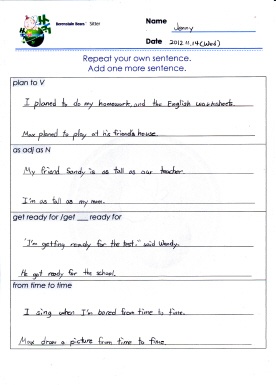 Berenstain Bears' Sitter
Name Jenny
Date 2012.11.14(Wed)
Repeat your own sentence.
Add one more sentence.
plan to V
I planed to do my homework, and the English worksheets.
Max planed to play at his friend's house.
as adj as N
My friend Sandy is as tall as our teacher.
I'm as tall as my mom.
get ready for /get ___ ready for
"I'm getting ready for the test." said Wendy.
He got ready for the school.
from time to time
I sing when I'm bored from time to time.
Max draw a picture from time to time.